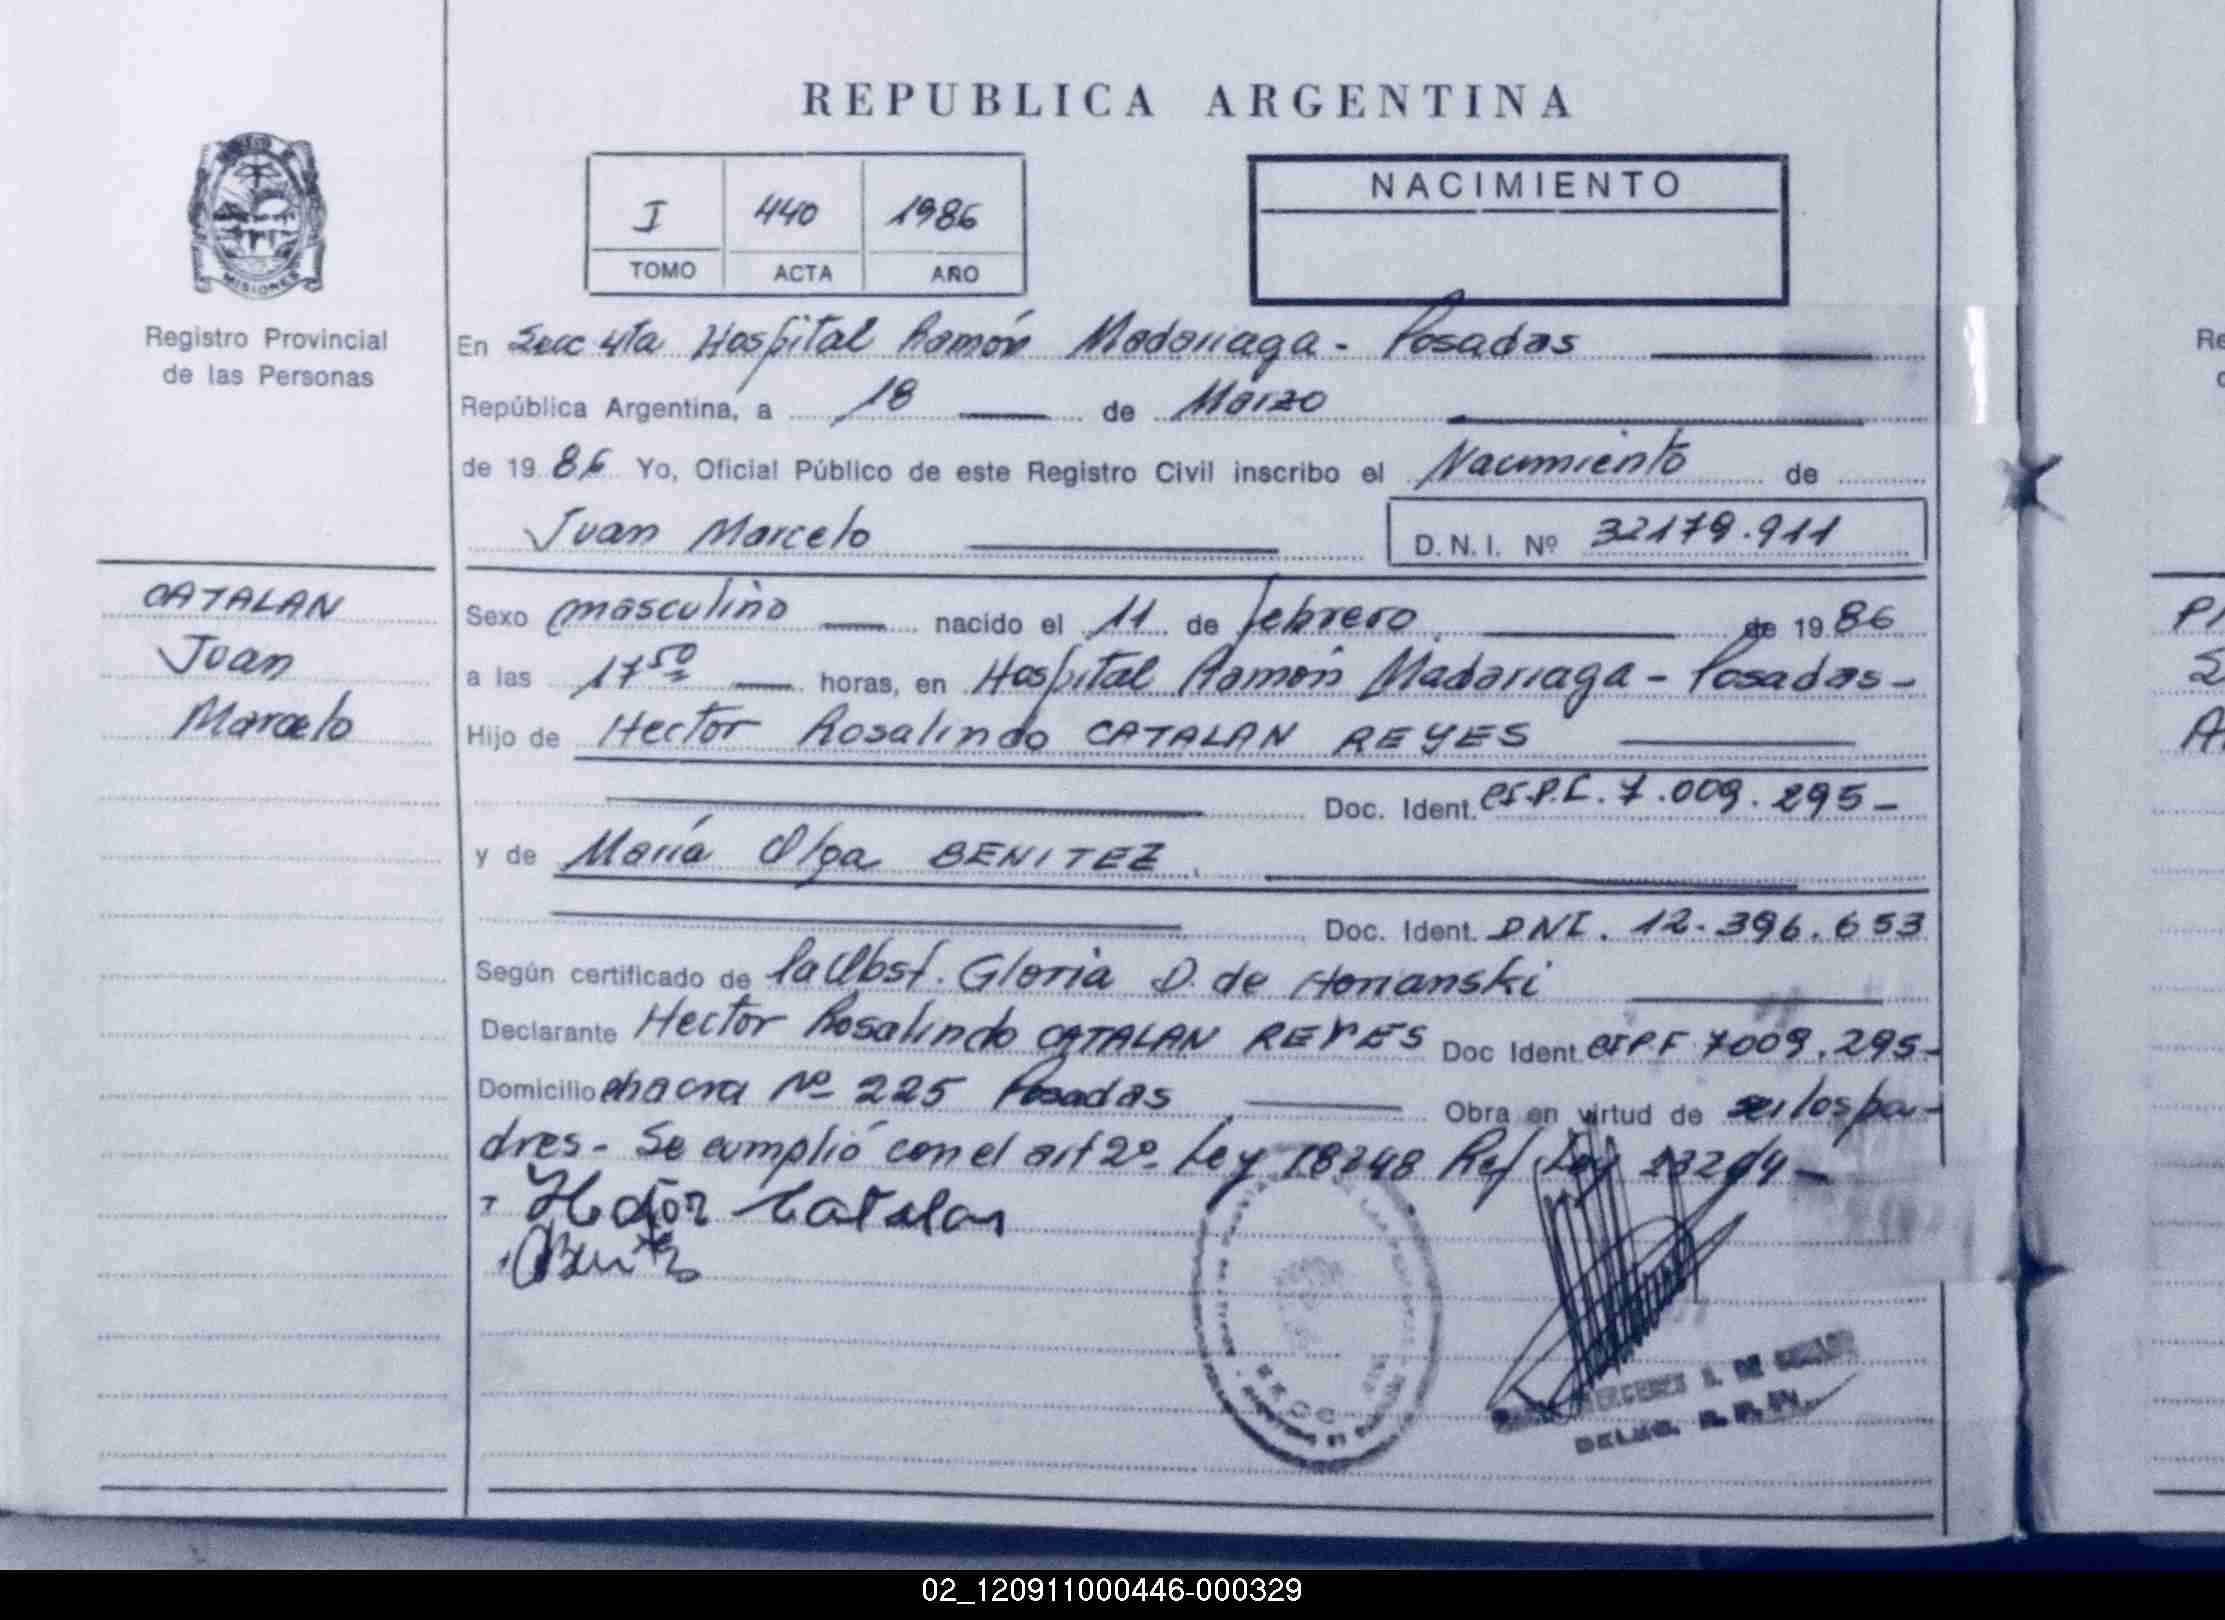 REPUBLICA ARGENTINA
MISIONES
Registro Provincial
de las Personas
I 440 1986
TOMO ACTA AÑO
NACIMIENTO
En Secc 4ta Hospital Ramón Madariaga - Posadas
República Argentina, a 18 de Marzo
de 19 86 Yo, Oficial Público de este Registro Civil inscribo el Nacimiento de
Juan Marcelo D.N.I. Nº 32179.911
CATALAN
Juan
Marcelo
Sexo masculino nacido el 11 de febrero de 19 86
a las 17 50 horas, en Hospital Ramón Madariaga - Posadas -
Hijo de Hector Rosalindo CATALAN REYES
Doc. Ident. 7.009.295 -
y de María Olga BENITEZ
Doc. Ident. DNI. 12.396.653
Según certificado de la Obst. Gloria D. de Horianski
Declarante Hector Rosalindo CATALAN REYES Doc Ident 7009.295 -
Domicilio chacra Nº 225 Posadas Obra en virtud de ser los pa-
dres - Se cumplió con el art 2º Ley 18248 Ref Ley
Hector Catalan
Benitez
MERCEDES
DELEG. R. P. P.
02_120911000446-000329